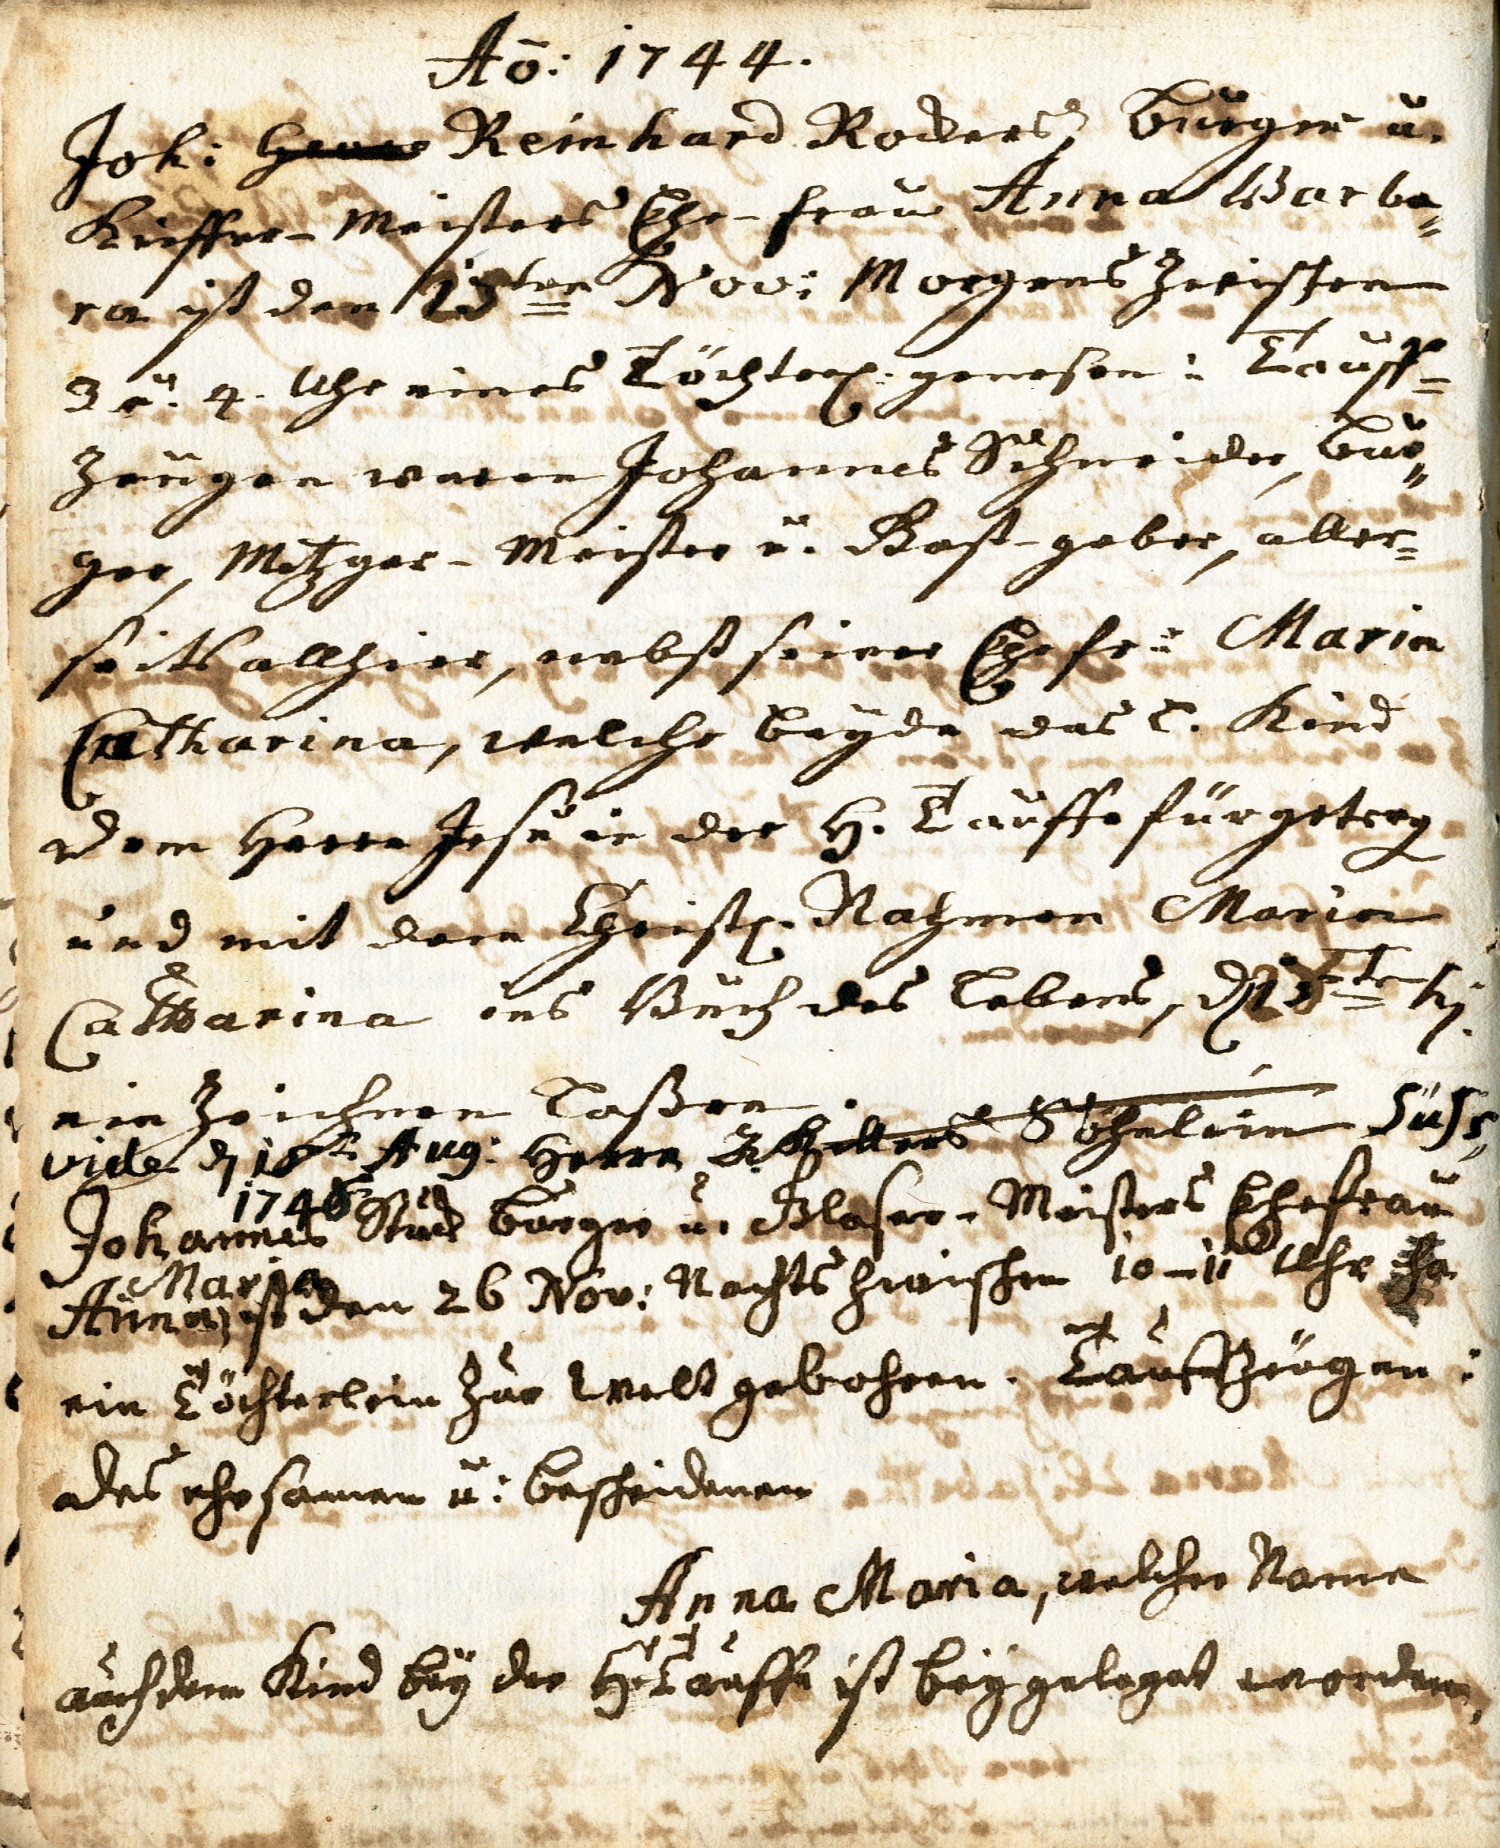 Aō: 1744.
Joh: Reinhard Roders, Burger u.
Kieffer-Meisters Ehe-frau Anna Barba„
ra ist den 15ten Nov: Morgens Zwischen
3 u. 4. Uhr eines Töchterl. genesen: Tauff=
Zeugen waren Johannes Schneider, Bur„
ger, Metzger-Meister u. Gast-geber, aller=
seits allhier, nebst seiner Ehefr: Maria
Catharina, welche beyde das l. Kind
dem Herrn Jesu in der H. Tauffe fürgetrag
und mit dem Christl. Nahmen Maria
Catharina ins Buch des Lebens, hj.
ein Zeichnen laßen.
vide d 18t Aug: Herrn Söhnlein
1746
Johannes Burger u. Glaser-Meisters Ehefrau
Maria
Anna ist den 26 Nov: Nachts zwischen 10-11 Uhr
ein Töchterlein zur Welt gebohren. Tauffzeugen:
des ehrsamen u: bescheidenen
Anna Maria, welcher Name
auch dem Kind bey der H. Tauffe ist beygelegt worden,